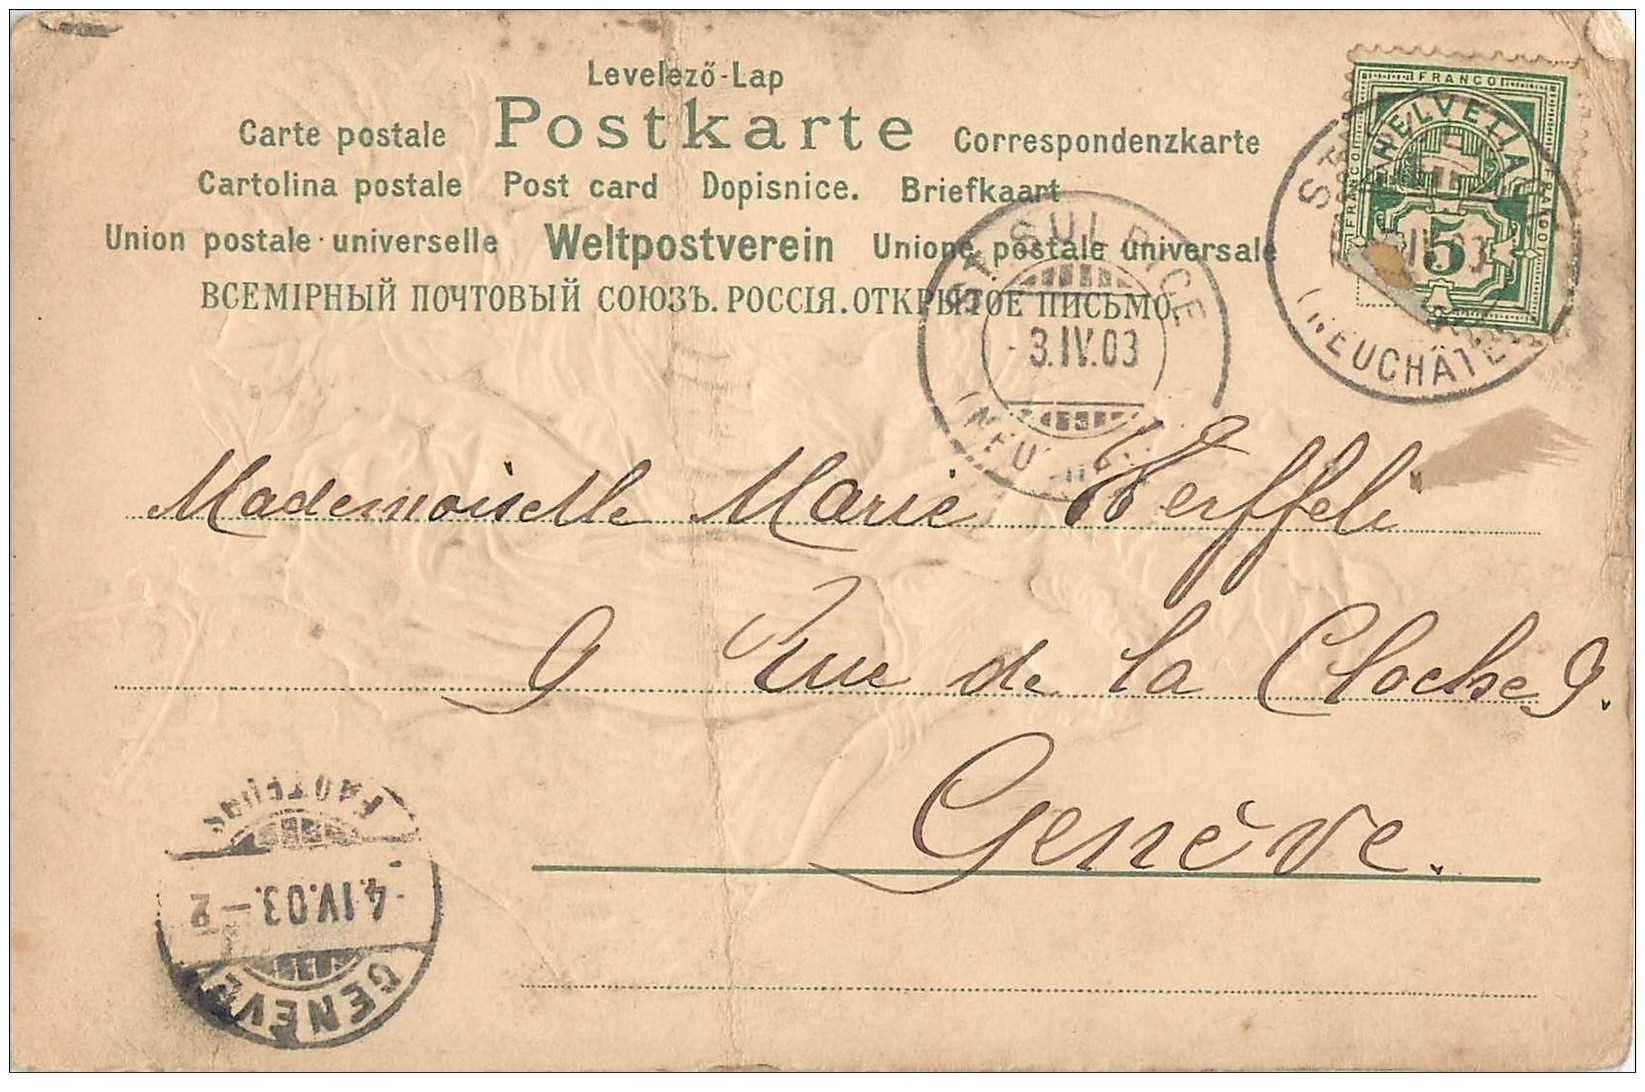 Levelező-Lap
Carte postale Postkarte Correspondenzkarte
Cartolina postale Post card Dopisnice. Briefkaart
Union postale universelle Weltpostverein Unione postale universale
ВСЕМІРНЫЙ ПОЧТОВЫЙ СОЮЗЪ. РОССІЯ. ОТКРЫТОЕ ПИСЬМО.
FRANCO
FRANCO HELVETIA FRANCO
5
IV.03
(NEUCHÂTEL
ST. SULPICE
- 3.IV.03
Mademoiselle Marie Werffeli
9 Rue de la Cloche 9.
Genève.
FACTEURS
-4.IV.03.-2
GENÈVE